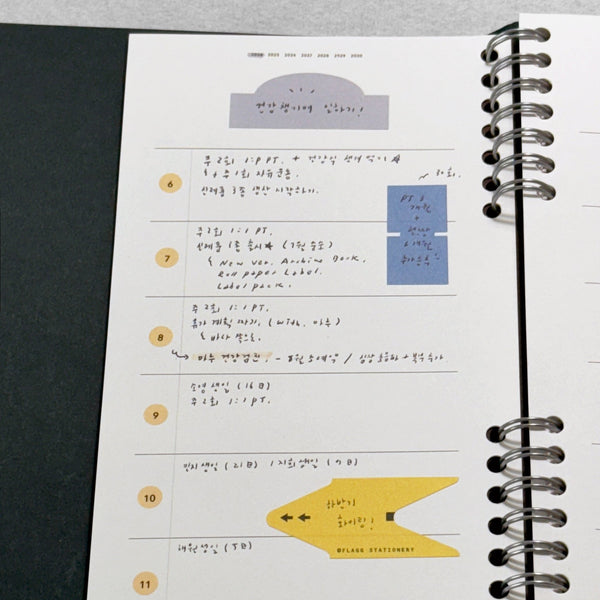 2024 2025 2026 2027 2028 2029 2030
건강 챙기며 일하기!
6
주 2회 1:1 PT. + 건강식 챙겨 먹기 ★
+ 주 1회 자유운동.
신제품 3종 생산 시작하기.
~ 30회.
PT 6
개월
+
현장
6개월
7
주 2회 1:1 PT.
신제품 1종 출시★ (7월 중순)
New Ver. Archive Book.
Roll paper Label.
Label pack.
8
주 2회 1:1 PT.
휴가 계획 짜기. (with. 마루)
바다 쪽으로.
마루 건강검진! - 8월 초 예약 / 심장 초음파 + 복부 추가
9
소영 생일 (16日)
주 2회 1:1 PT.
10
민지 생일 (21日) / 지희 생일 (9日)
하반기
화이팅!
@FLAGG STATIONERY
11
해원 생일 (5日)